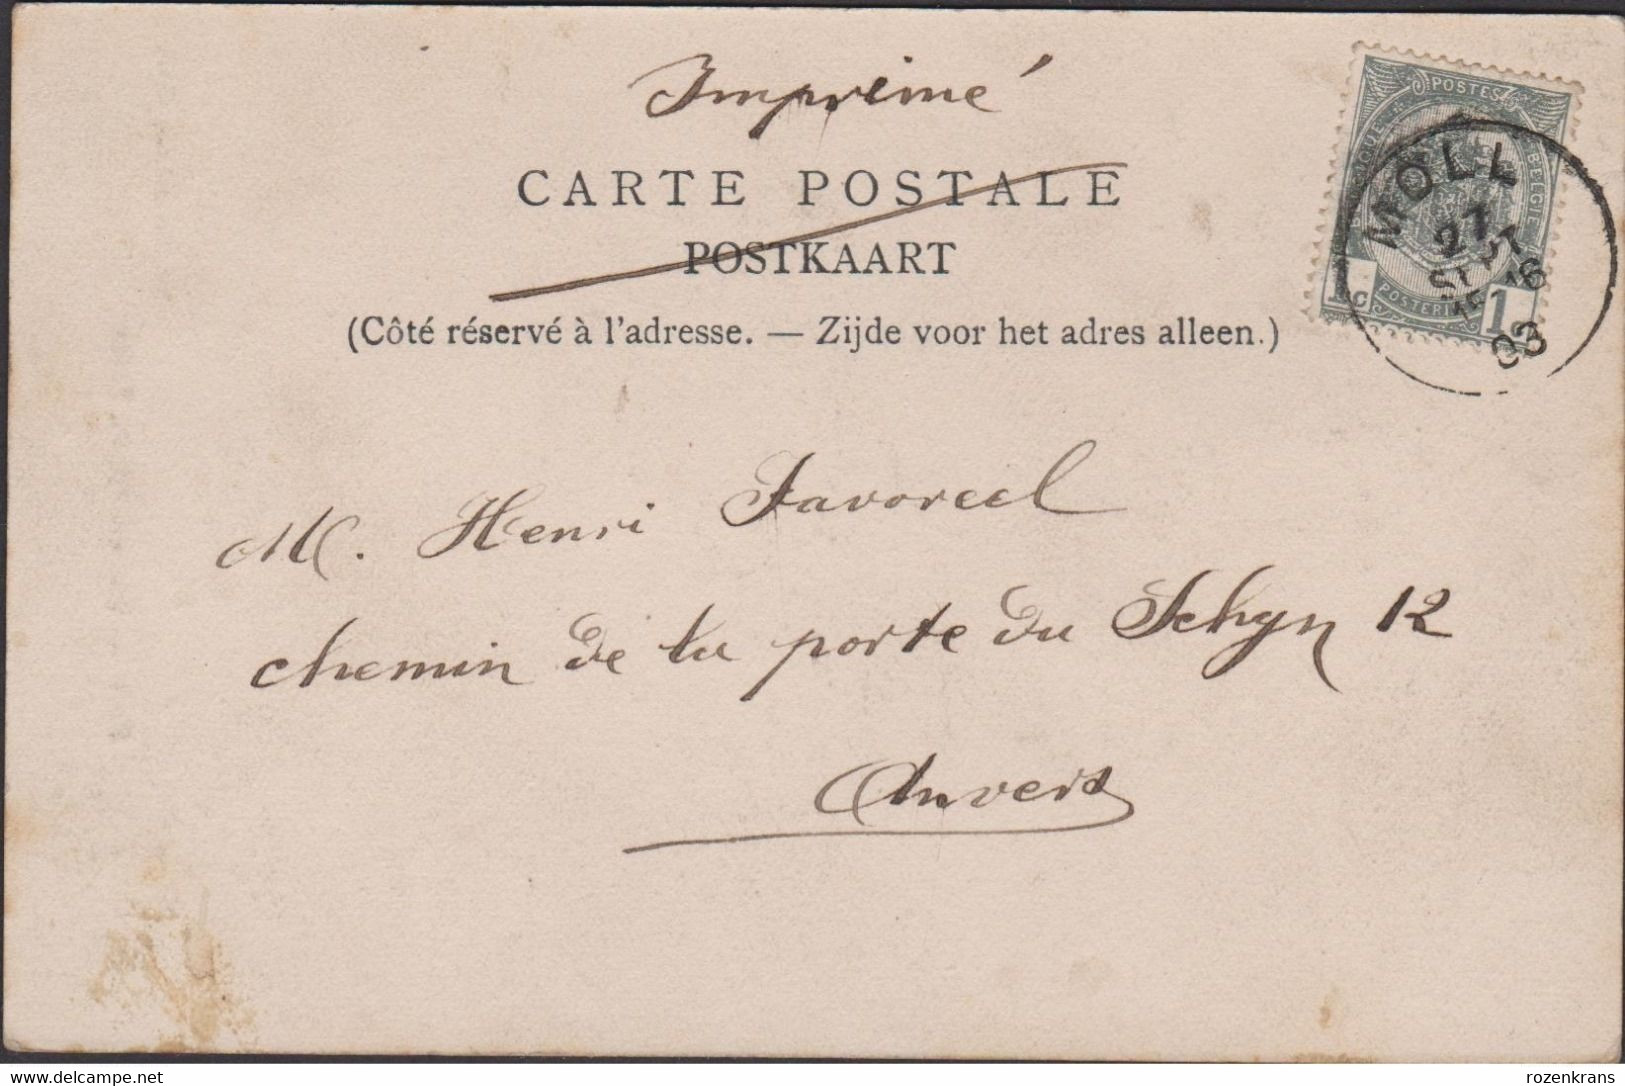 Imprimé
CARTE POSTALE
POSTKAART
(Côté réservé à l'adresse. — Zijde voor het adres alleen.)
POSTES
BELGIE
MOLL
27
SEPT
15-16
03
POSTERIJ
1c
1
M. Henri Favoreel
chemin de la porte du Schyn 12
Anvers
delcampe.net
rozenkrans